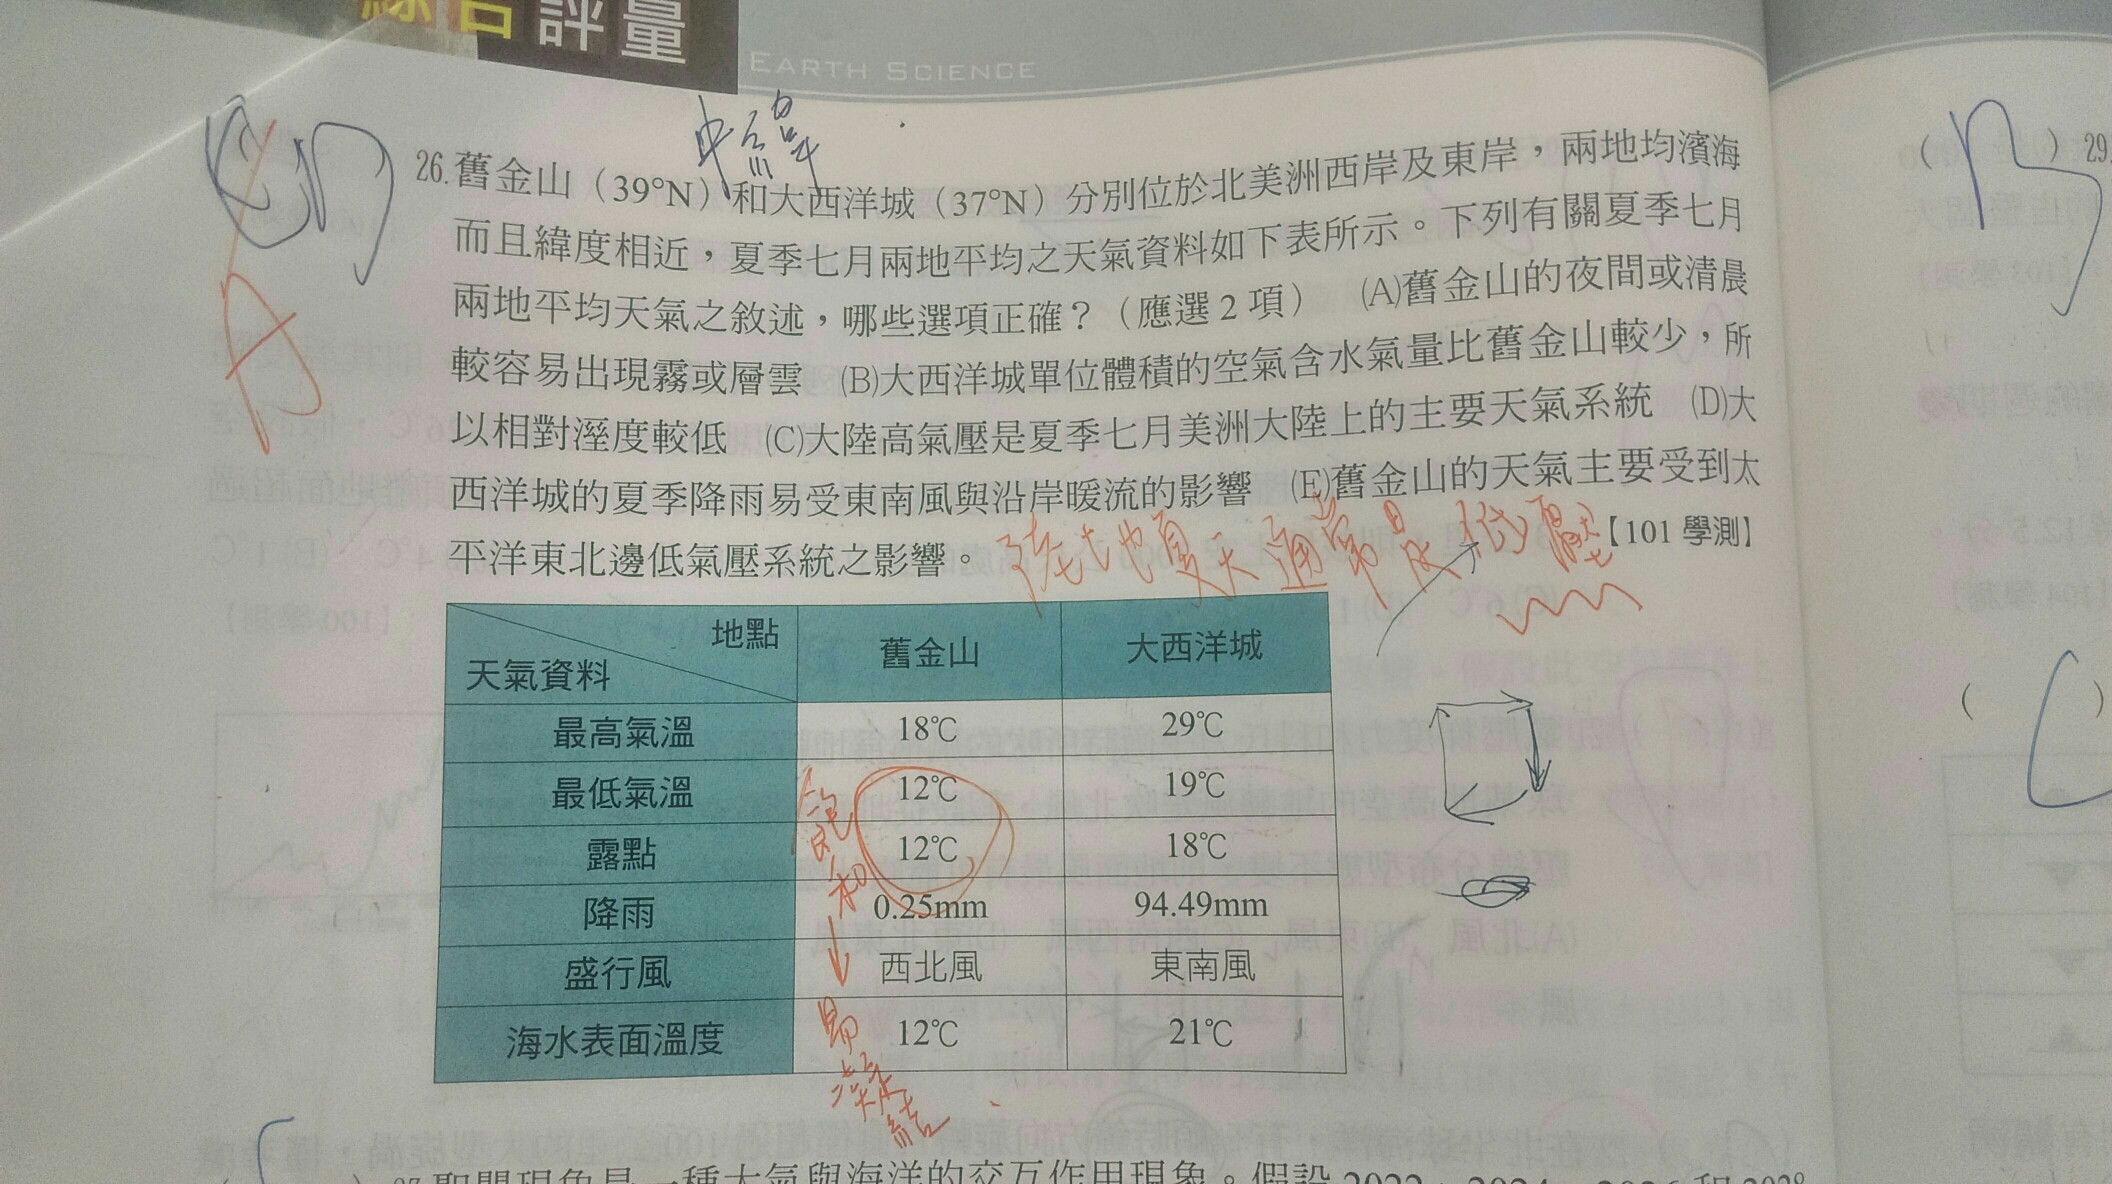 綜合評量
EARTH SCIENCE
中緯
26.舊金山（39°N）和大西洋城（37°N）分別位於北美洲西岸及東岸，兩地均濱海
而且緯度相近，夏季七月兩地平均之天氣資料如下表所示。下列有關夏季七月
兩地平均天氣之敘述，哪些選項正確？（應選2項） (A)舊金山的夜間或清晨
較容易出現霧或層雲 (B)大西洋城單位體積的空氣含水氣量比舊金山較少，所
以相對溼度較低 (C)大陸高氣壓是夏季七月美洲大陸上的主要天氣系統 (D)大
西洋城的夏季降雨易受東南風與沿岸暖流的影響 (E)舊金山的天氣主要受到太
平洋東北邊低氣壓系統之影響。 【101 學測】
陸地夏天通常是低壓
地點 舊金山 大西洋城
天氣資料
最高氣溫 18℃ 29℃
最低氣溫 12℃ 19℃
露點 12℃ 18℃
降雨 0.25mm 94.49mm
盛行風 西北風 東南風
海水表面溫度 12℃ 21℃
飽和
易
凝結
A
D
( ) 29.